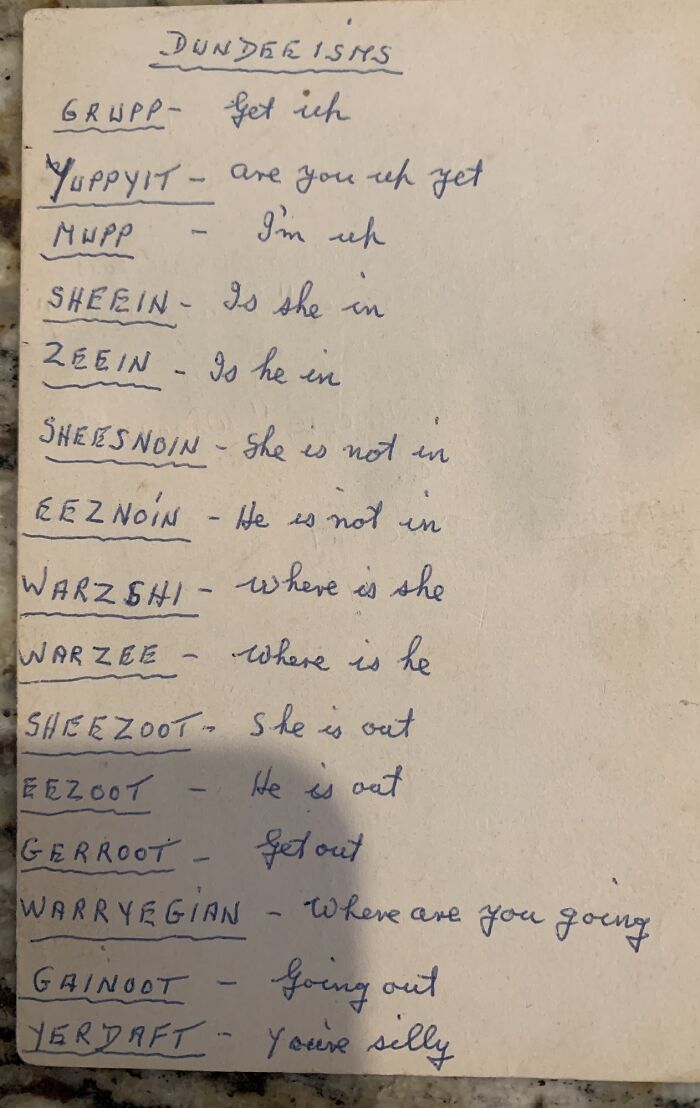 DUNDEEISMS
GRUPP - Get up
YUPPYIT - are you up yet
MUPP - I'm up
SHEEIN - Is she in
ZEEIN - Is he in
SHEESNOIN - She is not in
EEZNOIN - He is not in
WARZSHI - Where is she
WARZEE - Where is he
SHEEZOOT - She is out
EEZOOT - He is out
GERROOT - Get out
WARRYEGIAN - Where are you going
GAINOOT - Going out
YERDAFT - You're silly